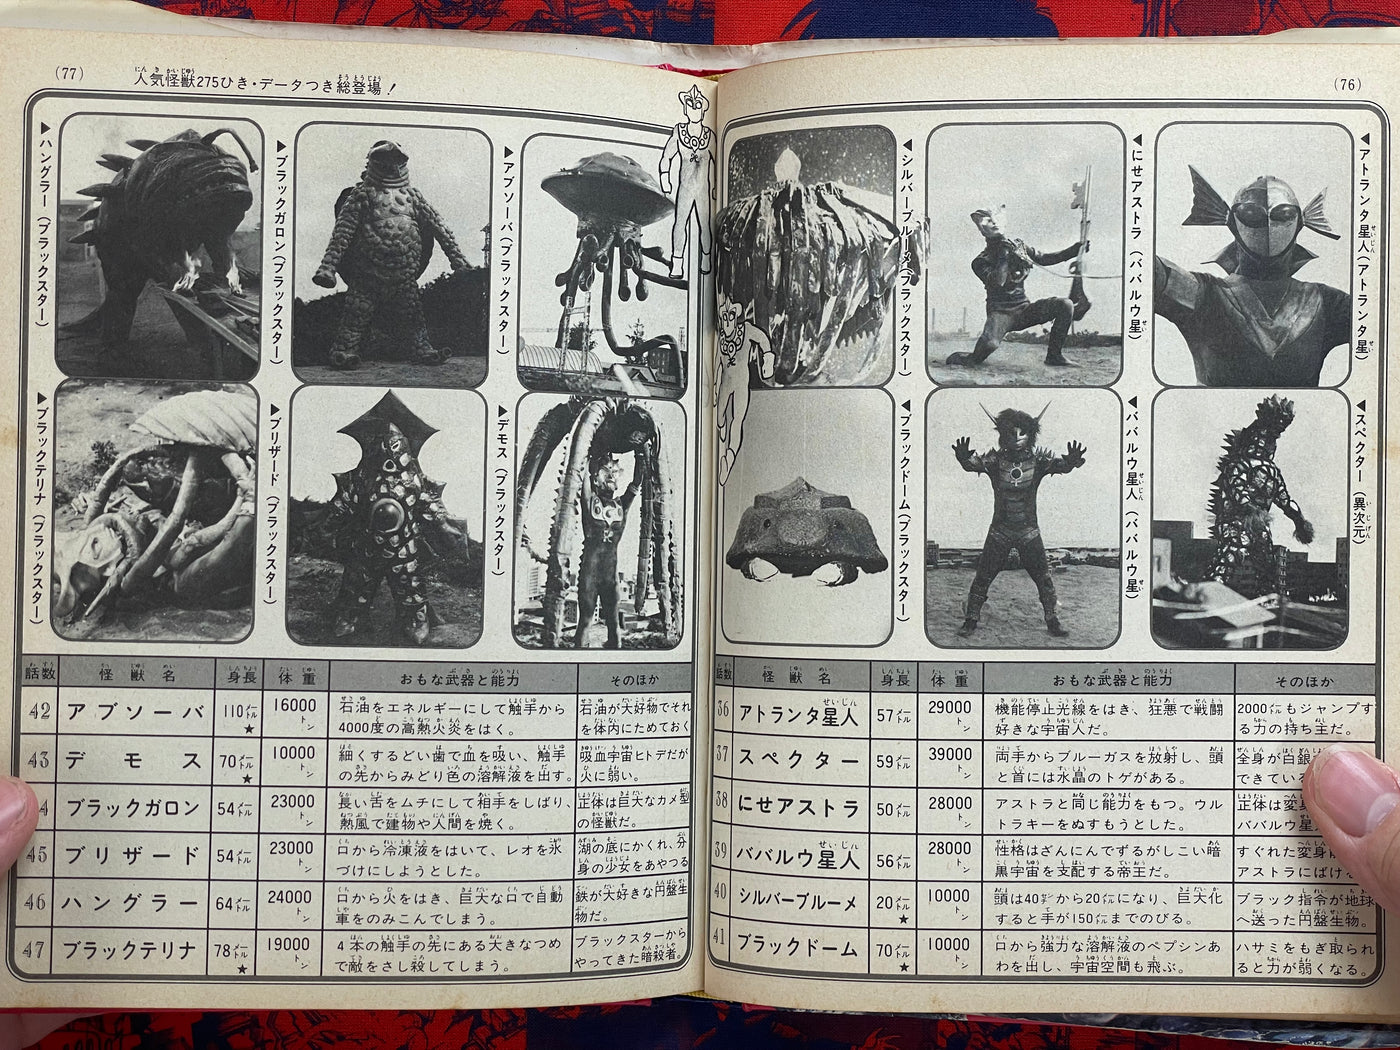 (76)
アトランタ星人(アトランタ星)
にせアストラ(ババルウ星)
シルバーブルーメ(ブラックスター)
スペクター(異次元)
ババルウ星人(ババルウ星)
ブラックドーム(ブラックスター)
話数 怪獣名 身長 体重 おもな武器と能力 そのほか
36 アトランタ星人 57メートル 29000トン
機能停止光線をはき、狂悪で戦闘
好きな宇宙人だ。
2000メートルもジャンプす
る力の持ち主だ。
37 スペクター 59メートル 39000トン
両手からブルーガスを放射し、頭
と首には水晶のトゲがある。
全身が白銀
できている
38 にせアストラ 50メートル 28000トン
アストラと同じ能力をもつ。ウル
トラキーをぬすもうとした。
正体は変身
ババルウ星
39 ババルウ星人 56メートル 28000トン
性格はざんにんでずるがしこい暗
黒宇宙を支配する帝王だ。
すぐれた変身
アストラにばける
40 シルバーブルーメ 20メートル★ 10000トン
頭は40メートルから20メートルになり、巨大化
すると手が150メートルまでのびる。
ブラック指令が地球
へ送った円盤生物。
41 ブラックドーム 70メートル★ 10000トン
口から強力な溶解液のペプシンあ
わを出し、宇宙空間も飛ぶ。
ハサミをもぎ取られ
ると力が弱くなる。
(77)
人気怪獣275ひき・データつき総登場!
アブソーバ(ブラックスター)
ブラックガロン(ブラックスター)
ハングラー(ブラックスター)
デモス(ブラックスター)
ブリザード(ブラックスター)
ブラックテリナ(ブラックスター)
話数 怪獣名 身長 体重 おもな武器と能力 そのほか
42 アブソーバ 110メートル★ 16000トン
石油をエネルギーにして触手から
4000度の高熱火炎をはく。
石油が大好物でそれ
を体内にためておく
43 デモス 70メートル★ 10000トン
細くするどい歯で血を吸い、触手
の先からみどり色の溶解液を出す。
吸血宇宙ヒトデだが
火に弱い。
4 ブラックガロン 54メートル 23000トン
長い舌をムチにして相手をしばり、
熱風で建物や人間を焼く。
正体は巨大なカメ型
の怪獣だ。
45 ブリザード 54メートル 23000トン
口から冷凍液をはいて、レオを氷
づけにしようとした。
湖の底にかくれ、分
身の少女をあやつる
46 ハングラー 64メートル 24000トン
口から火をはき、巨大な口で自動
車をのみこんでしまう。
鉄が大好きな円盤生
物だ。
47 ブラックテリナ 78メートル★ 19000トン
4本の触手の先にある大きなつめ
で敵をさし殺してしまう。
ブラックスターから
やってきた暗殺者。